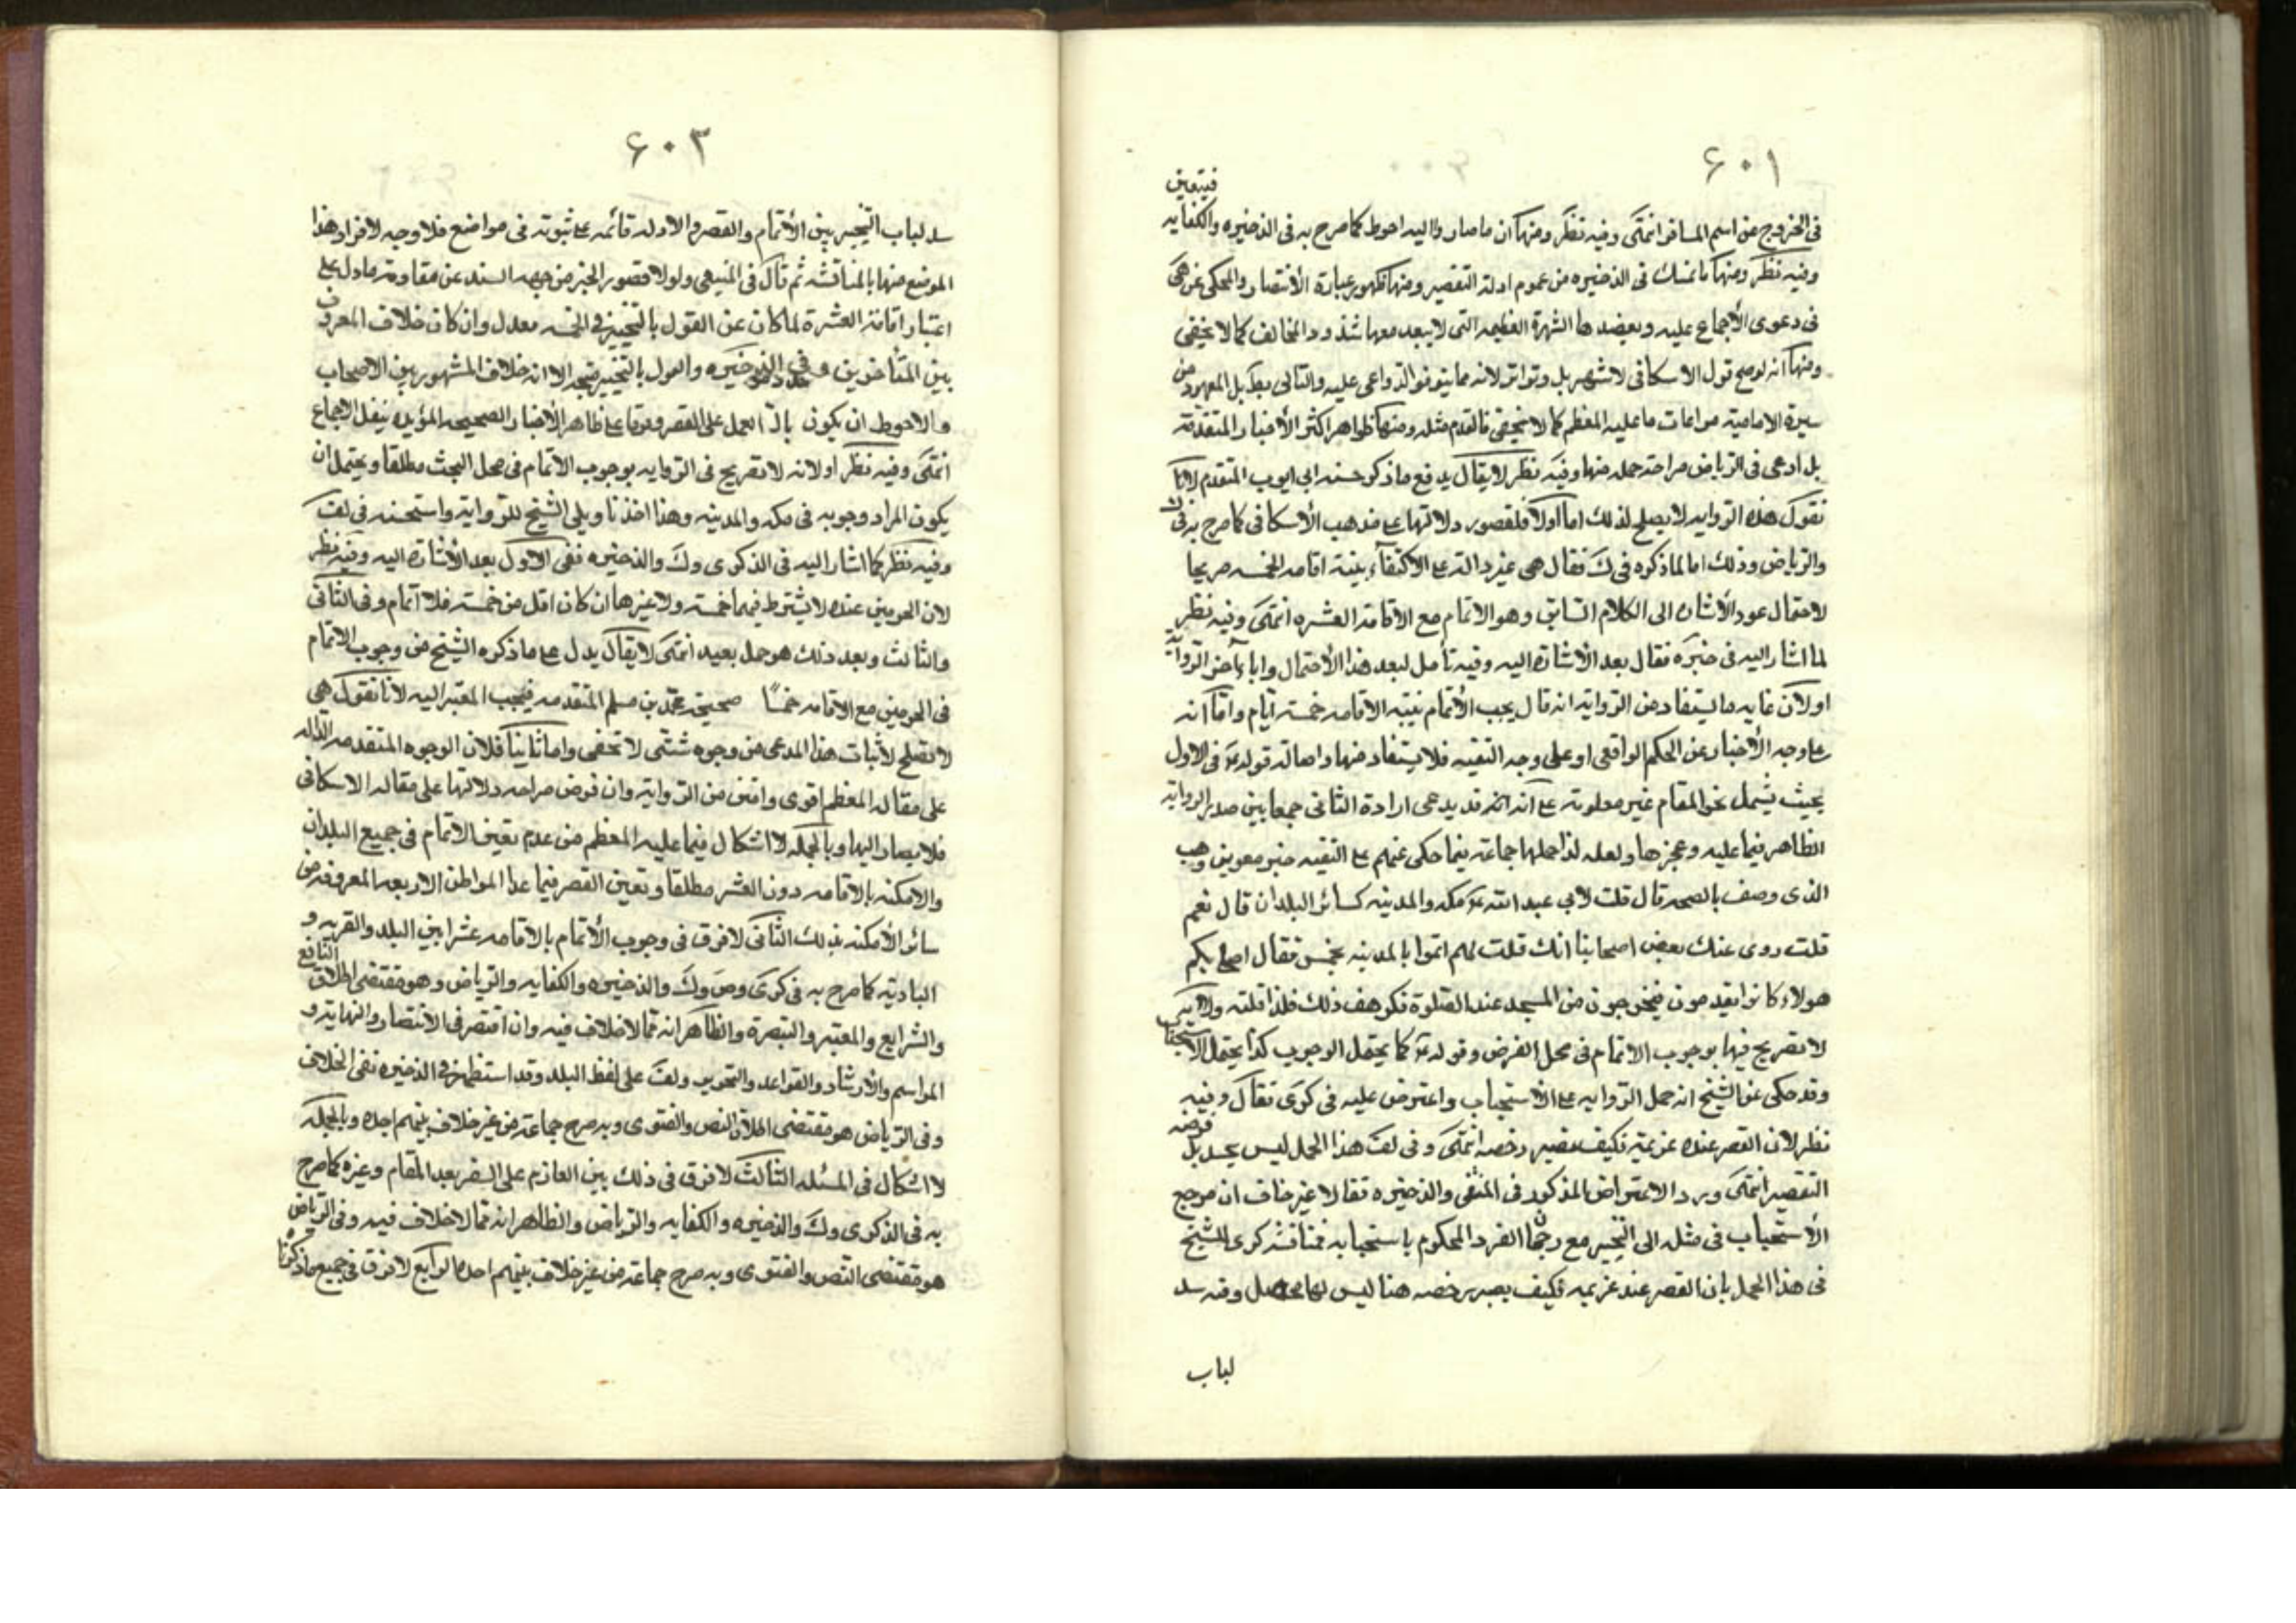 ۶۰۱
فيتعين
فى الخروج عن اسم المسافر انتهى وفيه نظر ومنها ان ما صاروا اليه احوط كما صرح به فى الذخيره والكفايه
وفيه نظر ومنها ما تمسك فى الذخيره من عموم ادلة التقصير ومنها ظهور عبارة الأنتصار والمحكى عن
فى دعوى الأجماع عليه ويعضدها الشهرة العظيمه التى لا يبعد معها شذوذ المخالف كما لا يخفى
ومنها انه لو صح قول الاسكافى لاشتهر بل وتواتر لانه مما يتوفر الدواعى عليه والتالى بط بل المعهود من
سيرة الامامية مراعات ما عليه المعظم كما لا يخفى فالمقدم مثله ومنها ظواهر اكثر الأخبار المتقدمة
بل ادعى فى الرياض صراحة جمله منها وفيه نظر لا يقال يدفع ما ذكر حسنه ابى ايوب المتقدم لانا
نقول هذه الروايه لا يصلح لذلك اما اولا فلقصور دلالتها على مذهب الأسكافى كما صرح به فى ك
والرياض وذلك اما لما ذكره فى ك فقال هى غير دالة على الاكتفاء بنية اقامه الخمسه صريحا
لاحتمال عود الأشاره الى الكلام السابق وهو الاتمام مع الأقامة العشره انتهى وفيه نظر
لما اشار اليه فى خيره فقال بعد الأشاة اليه وفيه تأمل لبعد هذا الأحتمال واباء آخر الرواية
او لان غايه ما يستفاد من الرواية انه قال يجب الأتمام بنيّه الاقامه خمسة ايام واما انه
على وجه الأخبار عن الحكم الواقعى او على وجه التقيه فلا يستفاد منها واصالة قوله ع فى الاول
بحيث يشمل نحو المقام غير معلومة على انه قد يدعى ارادة الثانى جمعا بين صدر الرواية
الظاهر فيما عليه وعجزها ولعله لذا حملها جماعة فيما حكى عنهم على التقيه خبر معوية بن وهب
الذى وصف بالصحه قال قلت لابي عبد الله ع مكه والمدينه كسائر البلدان قال نعم
قلت روى عنك بعض اصحابنا انك قلت لهم اتموا بالمدينه بخمس فقال اصحابكم
هولاء كانوا يقدمون فيخرجون من المسجد عند الصلوة فكرهت ذلك فلذا قلته
لا تصريح فيها بوجوب الاتمام فى محل الفرض وقوله ع كما يحتمل الوجوب كذا يحتمل الاستحباب
وقد حكى عن الشيخ انه حمل الروايه على الاستحباب واعترض عليه فى كرى فقال وفيه
نظر لان القصر عنده عزيمة فكيف يصير رخصه انتهى وفى لف هذا الحمل ليس بجيد بل فرضه
التقصير انتهى ويرد الاعتراض المذكور فى المنتقى والذخيره فقالا غير خاف ان مرجع
الأستحباب فى مثله الى التخيير مع رجحان الفرد المحكوم باستحبابه فمناقشة كرى للشيخ
فى هذا الحمل بان القصر عند عزيمه فكيف يصير رخصه هنا ليس لها محصل وفيه سد
لباب
۶۰۳
سد لباب التخيير بين الأتمام والقصر والادلة قائمه على ثبوته فى مواضع فلا وجه لافراد هذا
الموضع منها بالمناقشه ثم قال فى المنتقى ولولا قصور الخبر من جهه السند عن مقاومة ما دل على
اعتبار اقامة العشرة لما كان عن القول بالتخيير فى الخمسه معدل وان كان خلاف المعروف
بين المتأخرين وفى الذخيره والقول بالتخيير متجه الا انه خلاف المشهور بين الاصحاب
والاحوط ان يكون العمل على القصر وقوفا على ظاهر الأخبار الصحيحه المؤيده بنقل الاجماع
انتهى وفيه نظر اولا لانه لا تصريح فى الروايه بوجوب الاتمام فى محل البحث مطلقا ويحتمل ان
يكون المراد وجوبه فى مكه والمدينه وهذا احد تاويلى الشيخ للرواية واستحسنه فى لف
وفيه نظر كما اشار اليه فى الذكرى وك والذخيره ففى الاول بعد الأشارة اليه وفيه نظر
لان الحرمين عنده لا يشترط فيهما خمسة ولا غيرها ان كان اقل من خمسة فلا اتمام وفى الثانى
والثالث وبعد ذلك هو حمل بعيد انتهى لا يقال يدل على ما ذكره الشيخ من وجوب الاتمام
فى الحرمين مع الاقامه خمسًا صحيحة محمد بن مسلم المتقدمه فيجب المصير اليه لانا نقول هى
لا تصلح لأثبات هذا المدعى من وجوه شتى لا تخفى واما ثانيا فلان الوجوه المتقدمه الداله
على مقاله المعظم اقوى وامتن من الرواية وان فرض صراحه دلالتها على مقاله الاسكافى
فلا يصار اليها وبالجمله لا اشكال فيما عليه المعظم من عدم تعين الاتمام فى جميع البلدان
والامكنه بالاقامه دون العشر مطلقا وتعين القصر فيما عدا المواطن الاربعه المعروفه من
سائر الأمكنه بذلك الثانى لا فرق فى وجوب الأتمام بالاقامه عشرا بين البلد والقريه و
البادية كما صرح به فى كرى وض وك والذخيره والكفايه والرياض وهو مقتضى اطلاق النافع
والشرايع والمعتبر والتبصرة والظاهر انه مما لا خلاف فيه وان اقتصر فى الانتصار والنهاية و
المراسم والأرشاد والقواعد والتحرير ولف على لفظ البلد وقد استظهر فى الذخيره نفى الخلاف
وفى الرياض هو مقتضى اطلاق النص والفتوى وبه صرح جماعة من غير خلاف بينهم اجده وبالجمله
لا اشكال فى المسئله الثالث لا فرق فى ذلك بين العازم على السفر بعد المقام وغيره كما صرح
به فى الذكرى وك والذخيره والكفايه والرياض والظاهر انه مما لا خلاف فيه وفى الرياض
هو مقتضى النص والفتوى وبه صرح جماعة من غير خلاف بينهم اجده الرابع لا فرق فى جميع ما ذكرناه